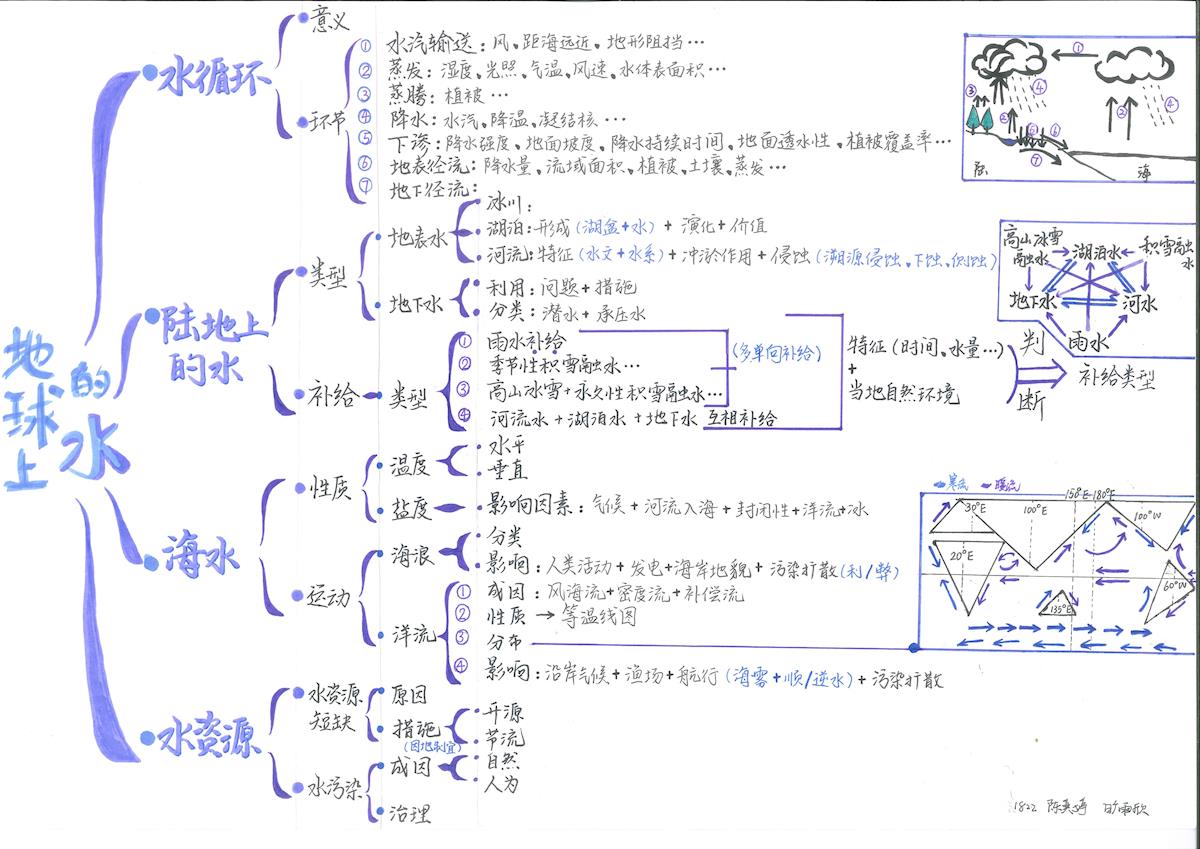 地球上的水
水循环
意义
环节
① 水汽输送：风、距海远近、地形阻挡…
② 蒸发：湿度、光照、气温、风速、水体表面积…
③ 蒸腾：植被…
④ 降水：水汽、降温、凝结核…
⑤ 下渗：降水强度、地面坡度、降水持续时间、地面透水性、植被覆盖率…
⑥ 地表径流：降水量、流域面积、植被、土壤、蒸发…
⑦ 地下径流：
① ② ③ ④ ④ ② ⑤ ⑥ ⑦
陆 海
陆地上的水
类型
地表水
冰川：
湖泊：形成（湖盆+水）+ 演化+价值
河流：特征（水文+水系）+冲淤作用+侵蚀（溯源侵蚀、下蚀、侧蚀）
地下水
利用：问题+措施
分类：潜水+承压水
补给
类型
① 雨水补给
② 季节性积雪融水…
③ 高山冰雪+永久性积雪融水…
④ 河流水+湖泊水+地下水 互相补给
（多单向补给）
特征（时间、水量…）
+
当地自然环境
判
断
补给类型
高山冰雪融水
湖泊水
积雪融水
地下水
河水
雨水
海水
性质
温度
水平
垂直
盐度
影响因素：气候+河流入海+封闭性+洋流+冰
运动
海浪
分类
影响：人类活动+发电+海岸地貌+污染扩散（利/弊）
洋流
① 成因：风海流+密度流+补偿流
② 性质 → 等温线图
③ 分布
④ 影响：沿岸气候+渔场+航行（海雾+顺/逆水）+污染扩散
寒流 暖流
30°E 100°E 150°E-180°E 100°W
20°E 135°E 60°W
水资源
水资源短缺
原因
措施
（因地制宜）
开源
节流
水污染
成因
自然
人为
治理
1822